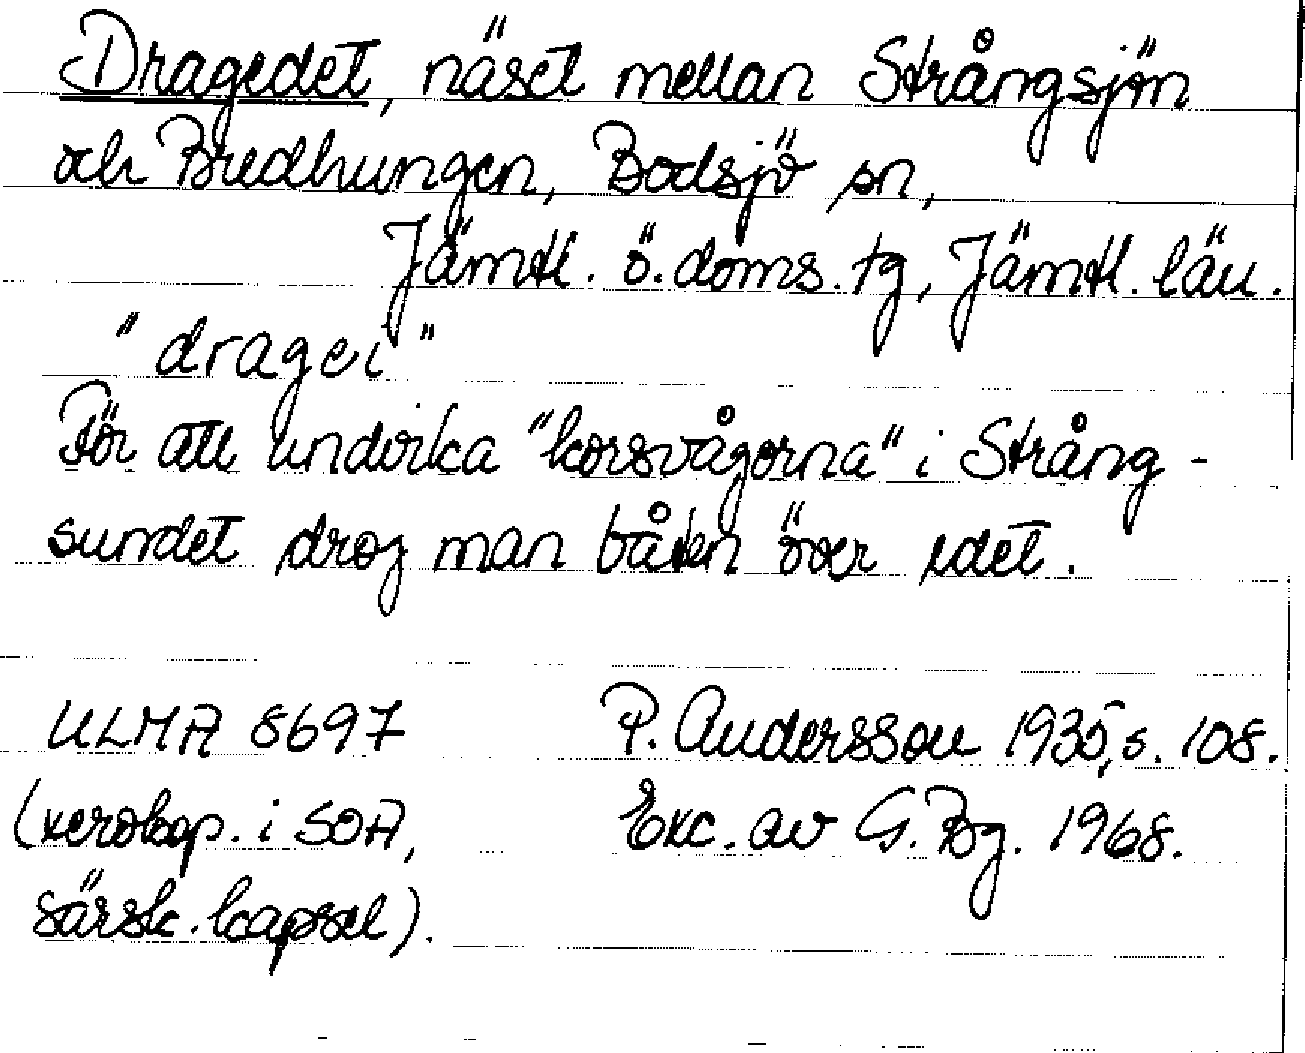 Dragedet, näset mellan Strångsjön
och Bredhungen, Bodsjö sn,
Jämtl. ö. doms. tg, Jämtl. län.
"dragei"
För att undvika "korsvågorna" i Strång-
sundet drog man båten över edet.
ULMA 8697 P. Andersson 1935, s. 108.
(xerokop. i SOA, Exc. av G. Bg. 1968.
särsk. kapsel).